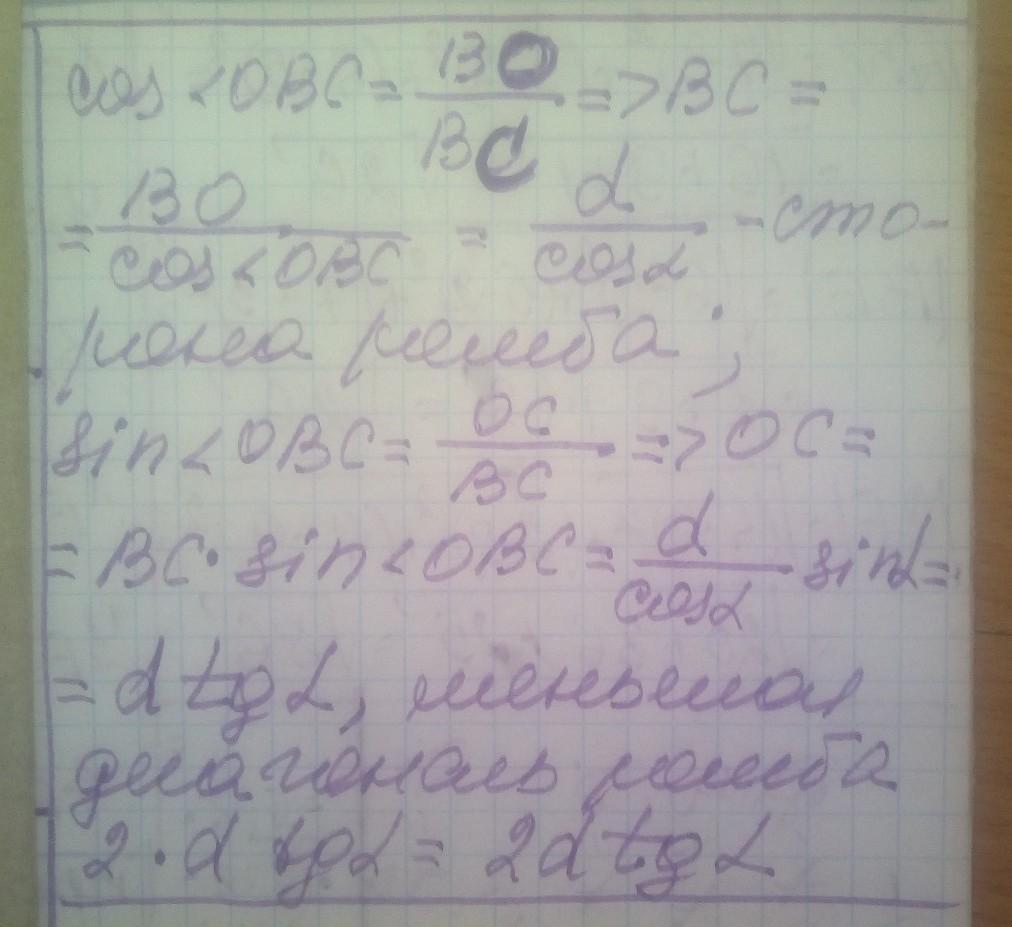 cos <OBC = BO/BC => BC =
= BO/cos<OBC = d/cosα - сто-
рона ромба ;
sin<OBC = OC/BC => OC =
= BC · sin<OBC = d/cosα sinα =
= d tgα, меньшая
диагональ ромба
2 · d tgα = 2d tgα